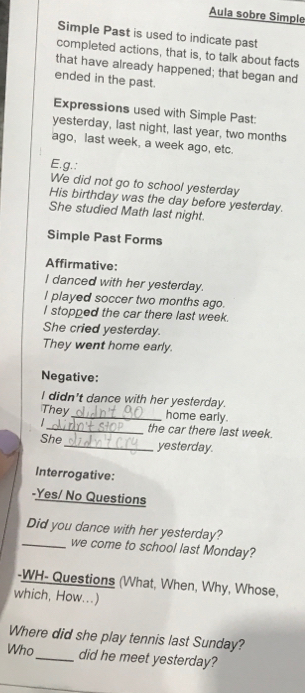 Aula sobre Simple
Simple Past is used to indicate past
completed actions, that is, to talk about facts
that have already happened; that began and
ended in the past.
Expressions used with Simple Past:
yesterday, last night, last year, two months
ago, last week, a week ago, etc.
E.g.:
We did not go to school yesterday
His birthday was the day before yesterday.
She studied Math last night.
Simple Past Forms
Affirmative:
I danced with her yesterday.
I played soccer two months ago.
I stopped the car there last week.
She cried yesterday.
They went home early.
Negative:
I didn't dance with her yesterday.
They didn't go home early.
I didn't stop the car there last week.
She didn't cry yesterday.
Interrogative:
-Yes/ No Questions
Did you dance with her yesterday?
______ we come to school last Monday?
-WH- Questions (What, When, Why, Whose,
which, How...)
Where did she play tennis last Sunday?
Who _____ did he meet yesterday?